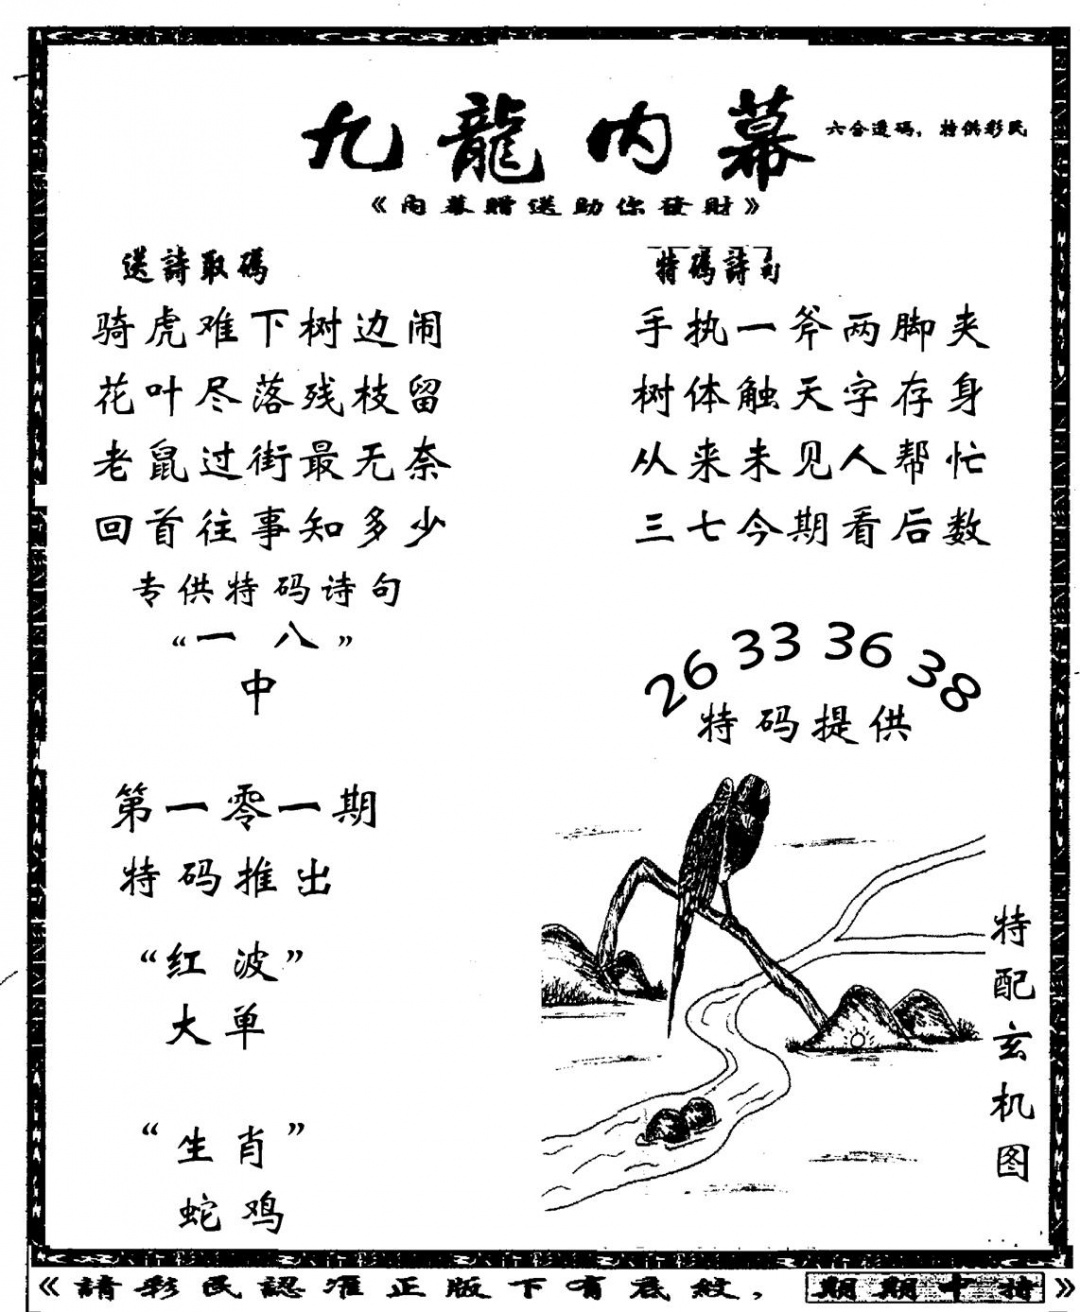 九龍内幕
六合透码，特供彩民
《内幕贈送助你發財》
送詩取碼
骑虎难下树边闹
花叶尽落残枝留
老鼠过街最无奈
回首往事知多少
专供特码诗句
“一八”
中
第一零一期
特码推出
“红波”
大单
“生肖”
蛇鸡
特碼詩句
手执一斧两脚夹
树体触天字存身
从来未见人帮忙
三七今期看后数
26 33 36 38
特码提供
特配玄机图
《請彩民認准正版下有底紋，期期中特》